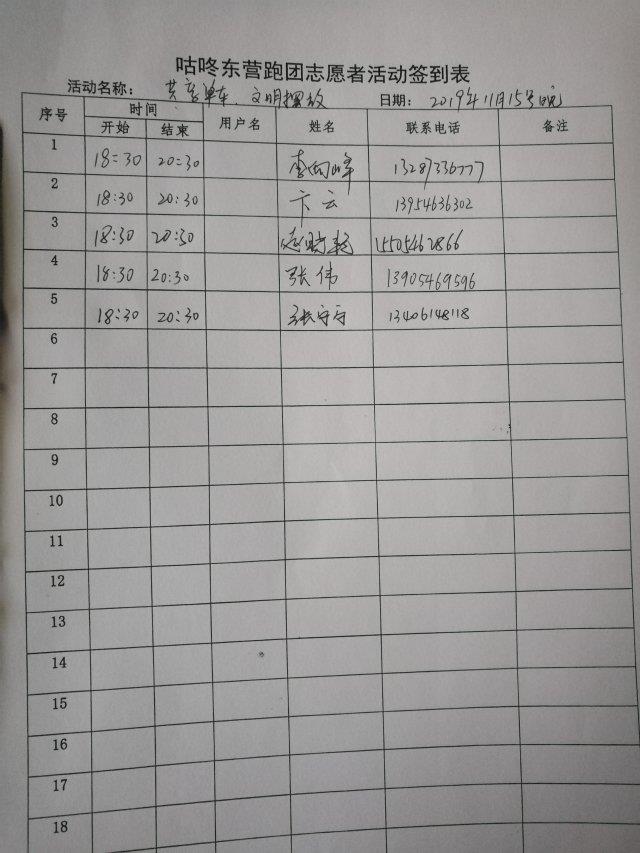 咕咚东营跑团志愿者活动签到表
活动名称: 共享单车、文明摆放 日期: 2019年11月15号晚
序号 时间 用户名 姓名 联系电话 备注
开始 结束
1 18:30 20:30 李向峰 13287336777
2 18:30 20:30 卞云 13954636302
3 18:30 20:30 15505462866
4 18:30 20:30 张伟 13905469596
5 18:30 20:30 张守宁 13406148118
6
7
8
9
10
11
12
13
14
15
16
17
18